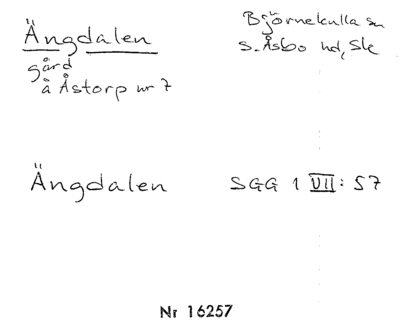 Ängdalen
gård
å Åstorp nr 7
Björnekulla sn
S. Åsbo hd, Sk
Ängdalen
SGG 1 VII: 57
Nr 16257